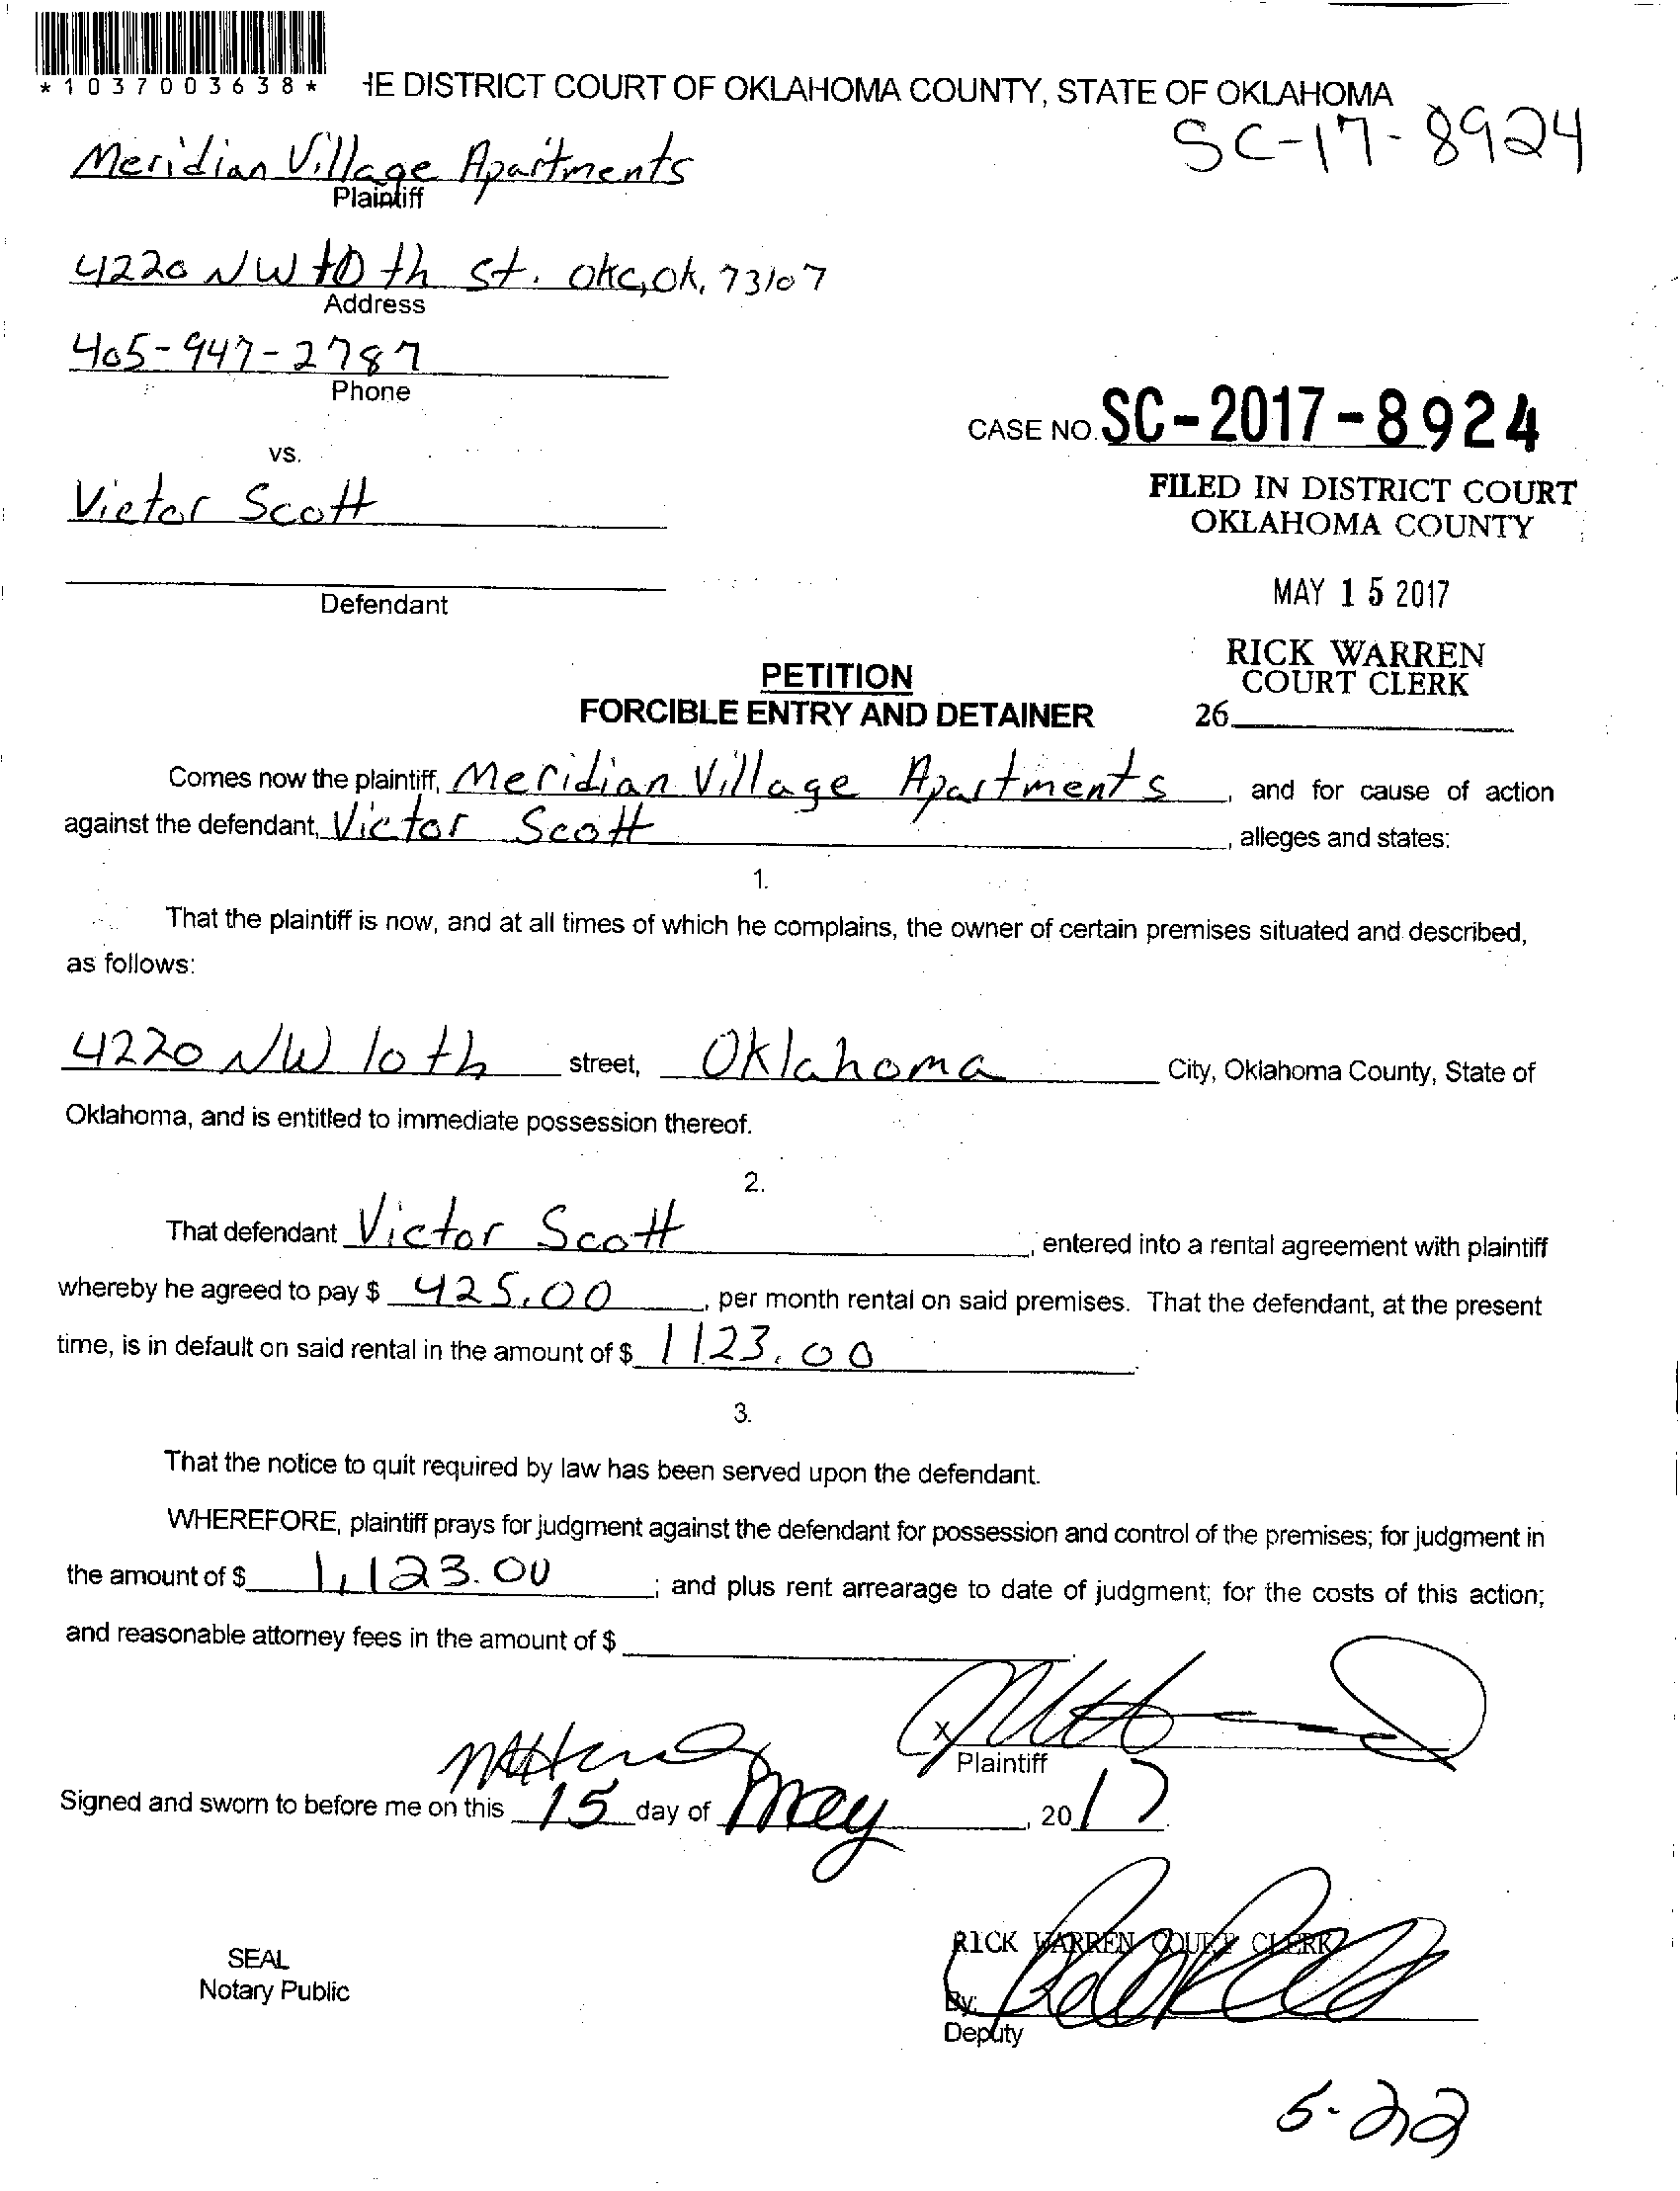 *1037003638*
HE DISTRICT COURT OF OKLAHOMA COUNTY, STATE OF OKLAHOMA
SC-17-8924
Meridian Village Apartments
Plaintiff
4220 NW 10 th St. OKC, OK, 73107
Address
405-947-2787
Phone
CASE NO. SC-2017-8924
vs.
Victor Scott
FILED IN DISTRICT COURT
OKLAHOMA COUNTY
Defendant
MAY 15 2017
RICK WARREN
COURT CLERK
26
PETITION
FORCIBLE ENTRY AND DETAINER
Comes now the plaintiff, Meridian Village Apartments, and for cause of action
against the defendant, Victor Scott, alleges and states:
1.
That the plaintiff is now, and at all times of which he complains, the owner of certain premises situated and described,
as follows:
4220 NW 10th street, Oklahoma City, Oklahoma County, State of
Oklahoma, and is entitled to immediate possession thereof.
2.
That defendant Victor Scott, entered into a rental agreement with plaintiff
whereby he agreed to pay $ 425.00, per month rental on said premises. That the defendant, at the present
time, is in default on said rental in the amount of $ 1123.00.
3.
That the notice to quit required by law has been served upon the defendant.
WHEREFORE, plaintiff prays for judgment against the defendant for possession and control of the premises; for judgment in
the amount of $ 1,123.00; and plus rent arrearage to date of judgment; for the costs of this action;
and reasonable attorney fees in the amount of $
X
Plaintiff
Signed and sworn to before me on this 15 day of May, 2017.
SEAL
Notary Public
RICK WARREN COURT CLERK
By:
Deputy
5-22